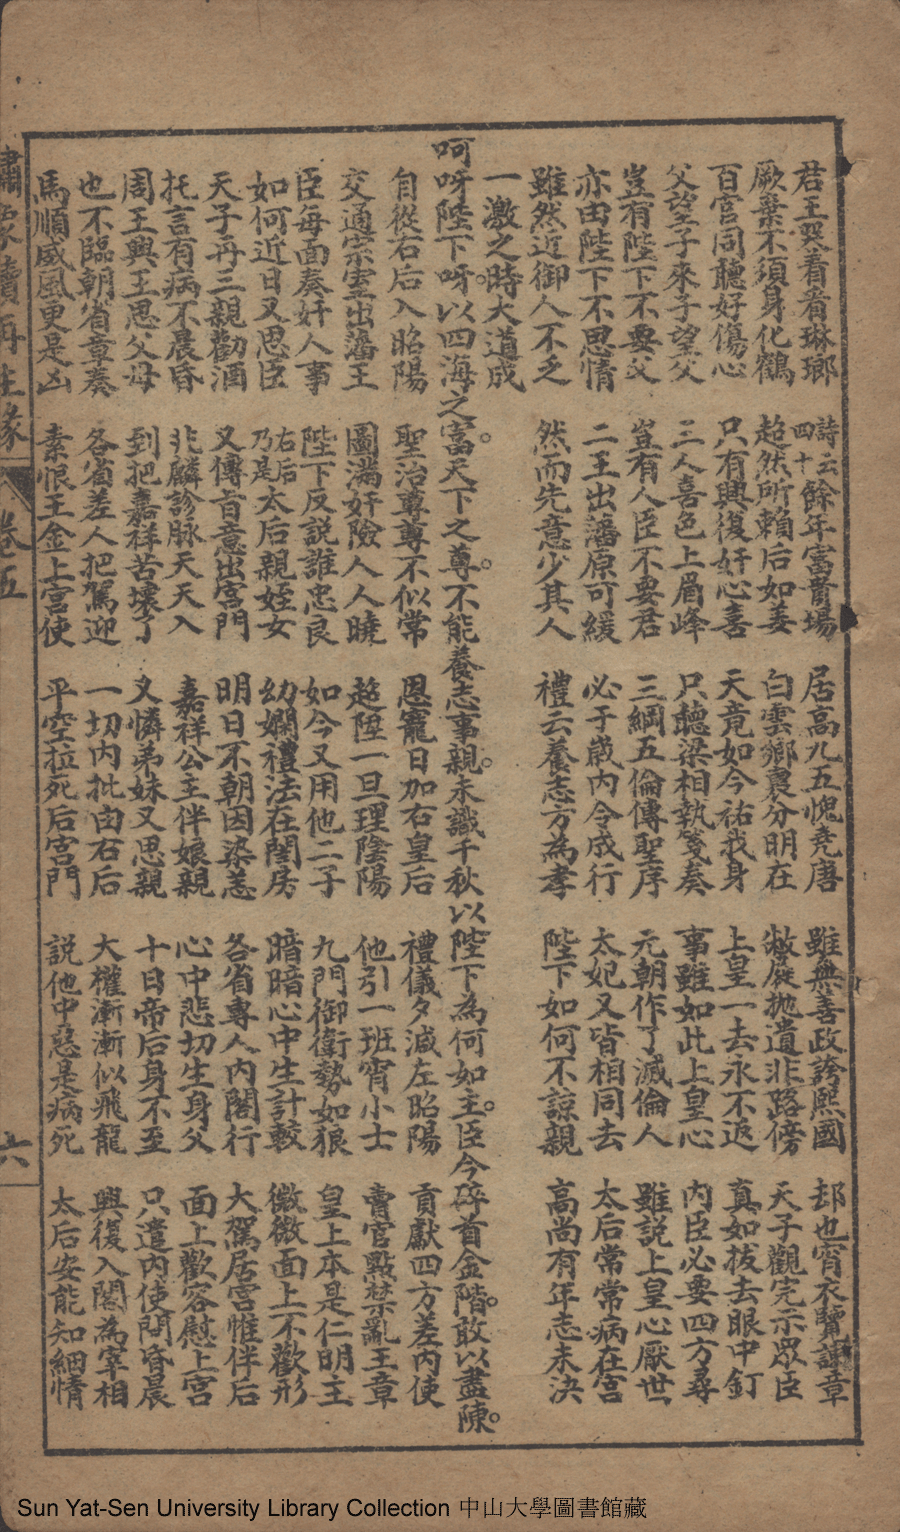 君王哭着看琳瑯 詩云四十餘年富貴場 居高九五愧堯唐 雖無善政誇熙國 却也宵衣覽諫章
厥棄不須身化鶴 超然所賴后如姜 白雲鄉裏分明在 敝屣拋遺非路傍 天子觀完示眾臣
百官同聽好傷心 只有興復奸心喜 天竟如今祐我身 上皇一去永不返 真如拔去眼中釘
父望子來子望父 三人喜色上眉峰 只聽梁相執笏奏 事雖如此上皇心 内臣必要四方尋
豈有陛下不要父 豈有人臣不要君 三綱五倫傳聖序 元朝作了滅倫人 雖説上皇心厭世
亦由陛下不思情 二王出潘原可緩 必于歲内令成行 太妃又皆相同去 太后常常病在宮
雖然近御人不乏 然而先意少其人 禮云養志方為孝 陛下如何不諒親 高尚有年志未決
一激之時大道成
呵呀陛下呀。以四海之富。天下之尊。不能養志事親。未識千秋以陛下為何如主。臣今碎首金階。敢以盡陳。
自從右后入昭陽 聖治尊尊不似常 恩寵日加右皇后 禮儀夕減左昭陽 貢獻四方差内使
交通宗室出藩王 圖滿奸險人人曉 趂陞一旦理陰陽 他引一班宵小士 賣官點禁亂王章
臣每面奏奸人事 陛下反説誰忠良 如今又用他二子 九門御衛勢如狼 皇上本是仁明主
如何近日又思臣 右后乃是太后親姪女 幼嫻禮法在閨房 暗暗心中生計較 微微面上不歡形
天子再三親勸酒 又傳旨意出宮門 明日不朝因染恙 各省專人内閣行 大駕居宮惟伴后
托言有病不晨昏 兆麟診脉天天入 嘉祥公主伴娘親 心中悲切生身父 面上歡容慰上宮
周王興王思父母 到把嘉祥苦壞了 又憐弟妹又思親 十日帝后身不至 只遣内使問昏晨
也不臨朝省章奏 各省差人把駕迎 一切内批由右后 大權漸漸似飛龍 興復入閣為宰相
馬順威風更是凶 素恨王金上宮使 平空拉死后宮門 説他中惡是病死 太后安能知細情
繡象續再生緣 卷五 六
Sun Yat-Sen University Library Collection 中山大學圖書館藏